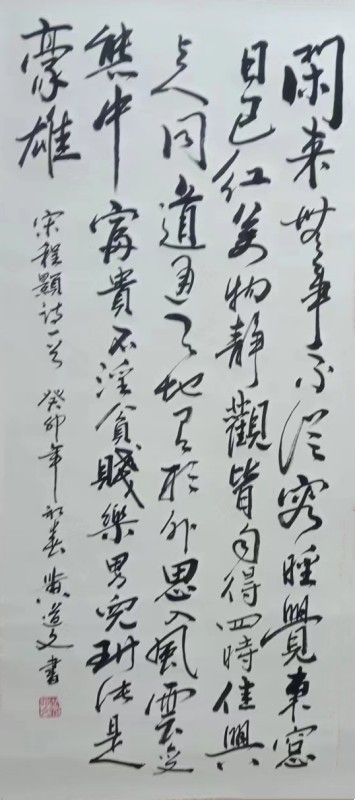 閑来無事不從容睡覺東窓
日已紅萬物靜觀皆自得四時佳興
与人同道通天地有形外思入風雲変
態中富貴不淫貧賤樂男兒到此是
豪雄
宋程顥詩一首 癸卯年初春 黄道文書